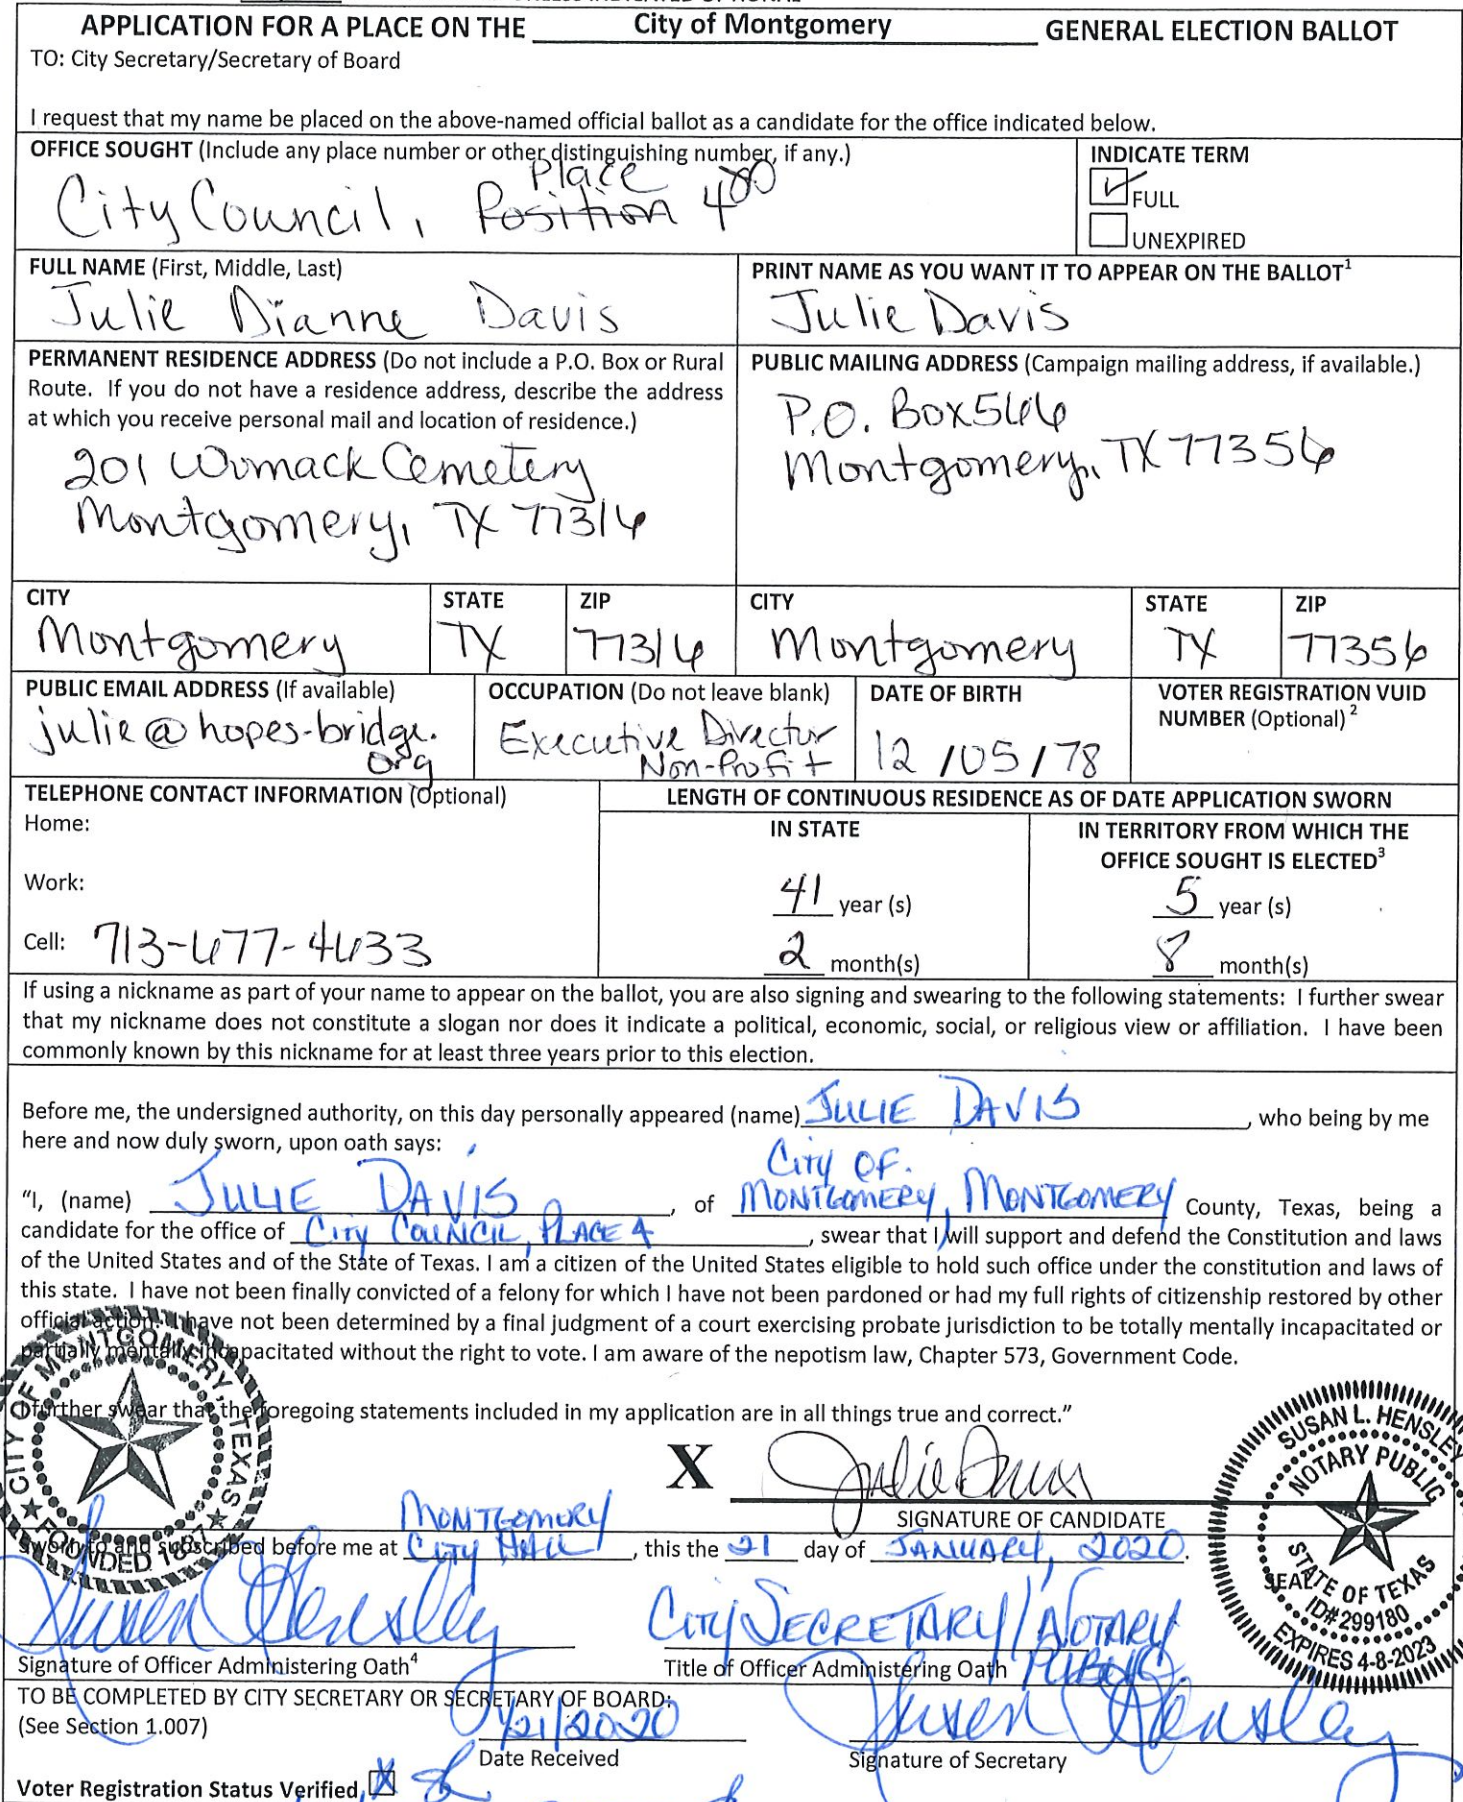 APPLICATION FOR A PLACE ON THE City of Montgomery GENERAL ELECTION BALLOT
TO: City Secretary/Secretary of Board
I request that my name be placed on the above-named official ballot as a candidate for the office indicated below.
OFFICE SOUGHT (Include any place number or other distinguishing number, if any.)
Place
City Council, Position 4
INDICATE TERM
FULL
UNEXPIRED
FULL NAME (First, Middle, Last)
Julie Dianne Davis
PRINT NAME AS YOU WANT IT TO APPEAR ON THE BALLOT¹
Julie Davis
PERMANENT RESIDENCE ADDRESS (Do not include a P.O. Box or Rural
Route. If you do not have a residence address, describe the address
at which you receive personal mail and location of residence.)
201 Womack Cemetery
Montgomery, TX 77316
PUBLIC MAILING ADDRESS (Campaign mailing address, if available.)
P.O. Box 566
Montgomery, TX 77356
CITY
Montgomery
STATE
TX
ZIP
77316
CITY
Montgomery
STATE
TX
ZIP
77356
PUBLIC EMAIL ADDRESS (If available)
julie@hopes-bridge.
org
OCCUPATION (Do not leave blank)
Executive Director
Non-Profit
DATE OF BIRTH
12/05/78
VOTER REGISTRATION VUID
NUMBER (Optional)²
TELEPHONE CONTACT INFORMATION (Optional)
Home:
Work:
Cell: 713-677-4633
LENGTH OF CONTINUOUS RESIDENCE AS OF DATE APPLICATION SWORN
IN STATE
41 year (s)
2 month(s)
IN TERRITORY FROM WHICH THE
OFFICE SOUGHT IS ELECTED³
5 year (s)
8 month(s)
If using a nickname as part of your name to appear on the ballot, you are also signing and swearing to the following statements: I further swear
that my nickname does not constitute a slogan nor does it indicate a political, economic, social, or religious view or affiliation. I have been
commonly known by this nickname for at least three years prior to this election.
Before me, the undersigned authority, on this day personally appeared (name) JULIE DAVIS, who being by me
here and now duly sworn, upon oath says:
City OF
"I, (name) JULIE DAVIS, of MONTGOMERY, MONTGOMERY County, Texas, being a
candidate for the office of City COUNCIL, PLACE 4, swear that I will support and defend the Constitution and laws
of the United States and of the State of Texas. I am a citizen of the United States eligible to hold such office under the constitution and laws of
this state. I have not been finally convicted of a felony for which I have not been pardoned or had my full rights of citizenship restored by other
official action. I have not been determined by a final judgment of a court exercising probate jurisdiction to be totally mentally incapacitated or
partially mentally incapacitated without the right to vote. I am aware of the nepotism law, Chapter 573, Government Code.
I further swear that the foregoing statements included in my application are in all things true and correct."
CITY OF MONTGOMERY, TEXAS
FOUNDED 1837
X Julie Davis
SIGNATURE OF CANDIDATE
SUSAN L. HENSLEY
NOTARY PUBLIC
STATE OF TEXAS
SEAL
ID# 299180
EXPIRES 4-8-2023
MONTGOMERY
Sworn to and subscribed before me at City HALL, this the 21 day of JANUARY, 2020.
Susan Hensley
Signature of Officer Administering Oath⁴
CITY SECRETARY/NOTARY
PUBLIC
Title of Officer Administering Oath
TO BE COMPLETED BY CITY SECRETARY OR SECRETARY OF BOARD:
(See Section 1.007)
1/21/2020
Date Received
Susan Hensley
Signature of Secretary
Voter Registration Status Verified